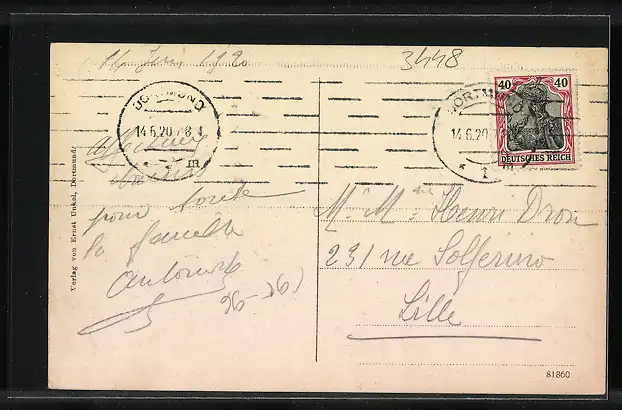 14 Juin 1920
3448
DORTMUND
14.6.20
1 m
DORTMUND
14.6.20
* 1 m
40 40
DEUTSCHES REICH
Affectueux
pour toute
la famille
Antoine
Mr Me Henri Dron
231 rue Solferino
Lille
Verlag von Ernst Unkel, Dortmund.
81860